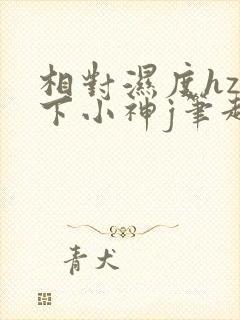 相對濕度hz
下小神j筆趣
青犬